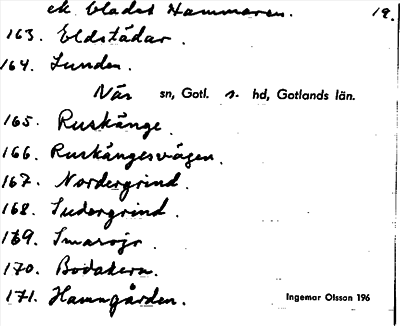 ek bladet Hammaren. 19.
163. Eldstädar.
164. Lunden.
När sn, Gotl. s. hd, Gotlands län.
165. Ruskänge.
166. Ruskängesvägen.
167. Nordergrind.
168. Sudergrind.
169. Smarojr.
170. Bodakern.
171. Hamngården.
Ingemar Olsson 196